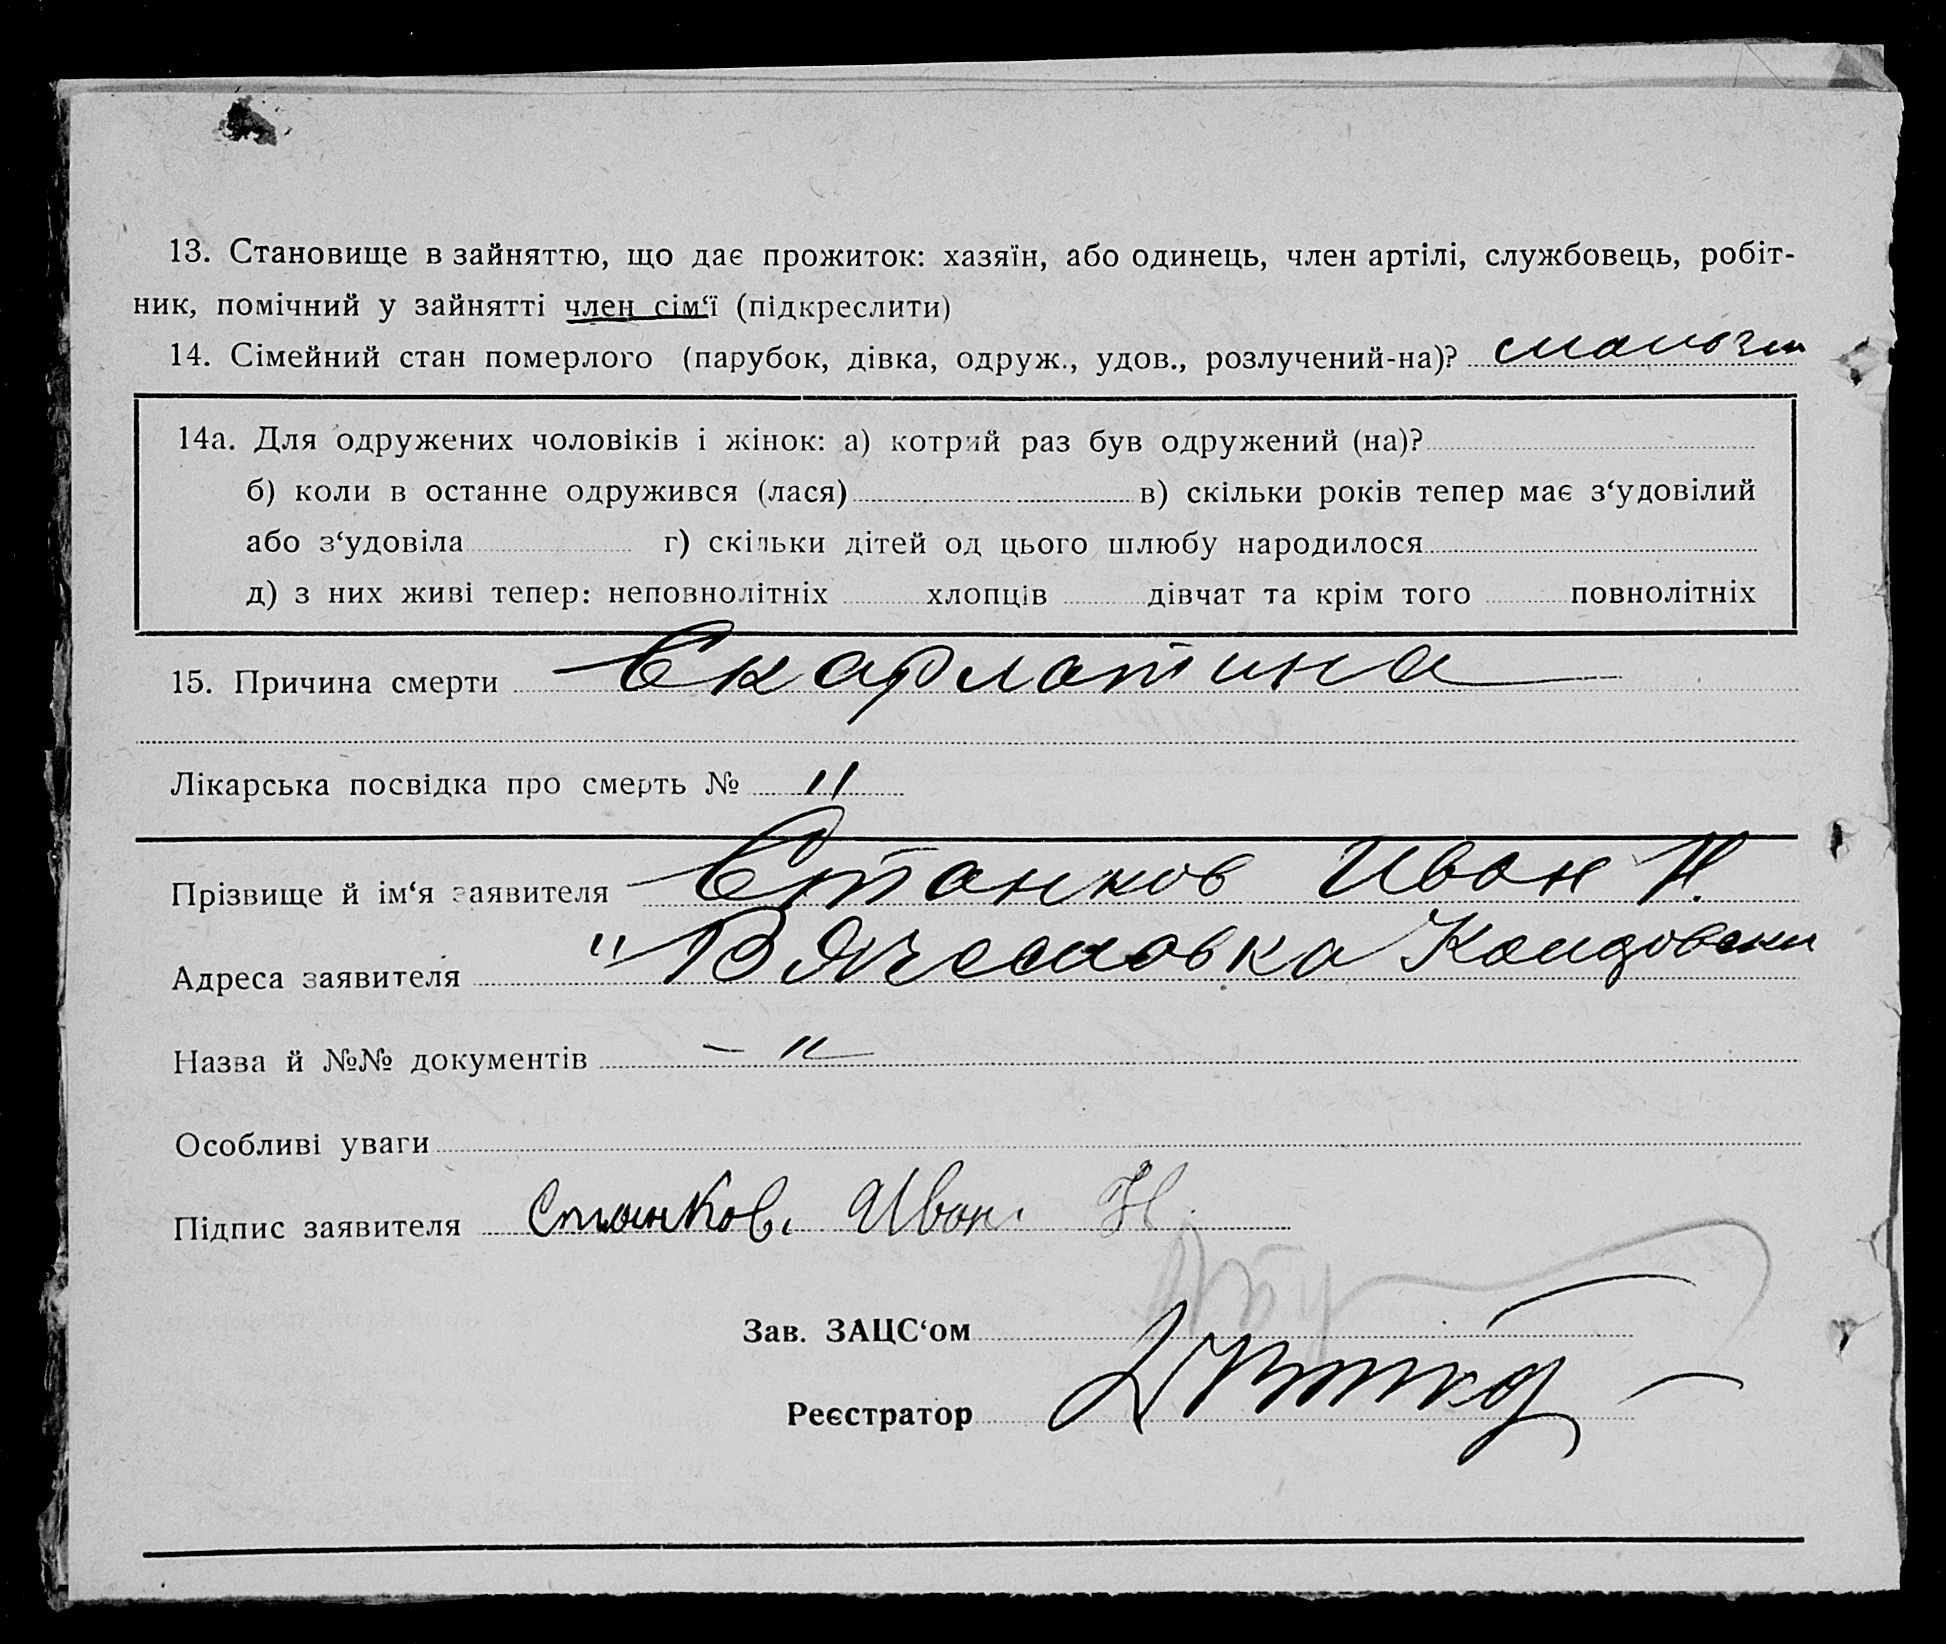 13. Становище в зайняттю, що дає прожиток: хазяїн, або одинець, член артілі, службовець, робіт-
ник, помічний у зайнятті член сім‘ї (підкреслити)
14. Сімейний стан померлого (парубок, дівка, одруж., удов., розлучений-на)?
14а. Для одружених чоловіків і жінок: а) котрий раз був одружений (на)?
б) коли в останне одружився (лася) в) скільки років тепер має з‘удовілий
або з‘удовіла г) скільки дітей од цього шлюбу народилося
д) з них живі тепер: неповнолітніх хлопців дівчат та крім того повнолітніх
15. Причина смерти Скарлатина
Лікарська посвідка про смерть № "
Прізвище й ім‘я заявителя Станков Иван Н.
Адреса заявителя " Вячеславка
Назва й №№ документів – " –
Особливі уваги
Підпис заявителя Станков. Иван. Н.
Зав. ЗАЦС‘ом
Реєстратор